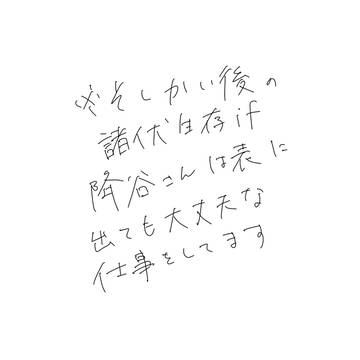 ※そしかい後の
諸伏生存if
降谷さんは表に
出ても大丈夫な
仕事をしてます